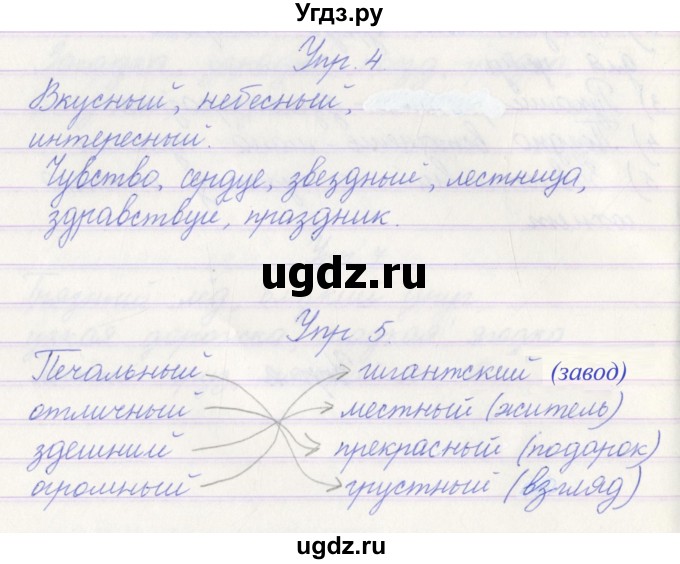 Угдз.ру
Упр. 4
Вкусный, небесный,
интересный.
Чувство, сердце, звездный, лестница,
здравствуй, праздник.
ugdz.ru
Упр 5.
Печальный гигантский (завод)
отличный местный (житель)
здешний прекрасный (подарок)
огромный грустный (взгляд)
ugdz.ru